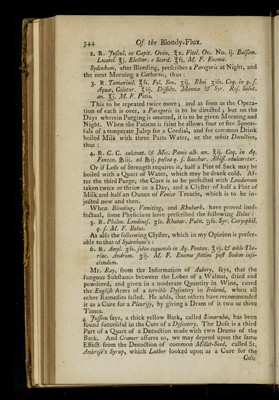 344 Of the Bloody-Flux.
2. R. Jusul. ex Capit. Ovin. ℥x. Vitel. Ov. No. ij. Balsam.
Locatel. ℥j. Elettar. e Scord. ℥ß, M. F. Enema.
Sydenham, after Bleeding, prescribes a Paregoric at Night, and
the next Morning a Cathartic, thus:
3. R. Tamarind. ℥ß. Fol. Sen. ʒij. Rhei ʒiß. Coq. in q. s.
Aquæ, Colatur. ℥iij. Dissolv. Mannæ & Syr. Ros. Solut.
an. ℥j. M. F. Potio.
This to be repeated twice more; and as soon as the Opera-
tion of each is over, a Paregoric is to be directed; but on the
Days wherein Purging is omitted, it is to be given Morning and
Night. When the Patient is faint he allows four or five Spoon-
fuls of a temperate Julep for a Cordial, and for common Drink
boiled Milk with three Parts Water, or the white Decoction,
thus:
4. R. C. C. calcinat. & Mic. Panis alb. an. ℥ij. Coq. in Aq.
Fontan. ℔iij. ad ℔ij. postea q. s. Sacchar. Albiss. edulcoretur.
Or if Loss of Strength requires it, half a Pint of Sack may be
boiled with a Quart of Water, which may be drank cold. Af-
ter the third Purge, the Cure is to be perfected with Laudanum
taken twice or thrice in a Day, and a Clyster of half a Pint of
Milk and half an Ounce of Venice Treacle, which is to be in-
jected now and then.
When Bleeding, Vomiting, and Rhubarb, have proved inef-
fectual, some Physicians have prescribed the following Bolus:
5. R. Philon. Londinens. ℈ß. Rhabar. Pulv. ℈ß. Syr. Caryophil.
q. s. M. F. Bolus.
As also the following Clyster, which in my Opinion is prefer-
able to that of Sydenham's:
6. R. Amyl. ℥ß. solve coquendo in Aq. Fontan. ℥vj. & adde The-
riac. Androm. ʒij. M. F. Enema statim post Sedem inji-
ciendum.
Mr. Ray, from the Information of Aubry, says, that the
fungous Substance between the Lobes of a Walnut, dried and
powdered, and given in a moderate Quantity in Wine, cured
the English Army of a terrible Dysentery in Ireland, when all
other Remedies failed. He adds, that others have recommended
it as a Cure for a Pleurisy, by giving a Dram of it two or three
Times.
Jussieu says, a thick yellow Bark, called Simaruba, has been
found successful in the Cure of a Dysentery. The Dose is a third
Part of a Quart of a Decoction made with two Drams of the
Bark. And Cramer assures us, we may depend upon the same
Effect from the Decoction of common Millet-Seed, called St.
Ambrose's Syrup, which Lather looked upon as a Cure for the
Colic